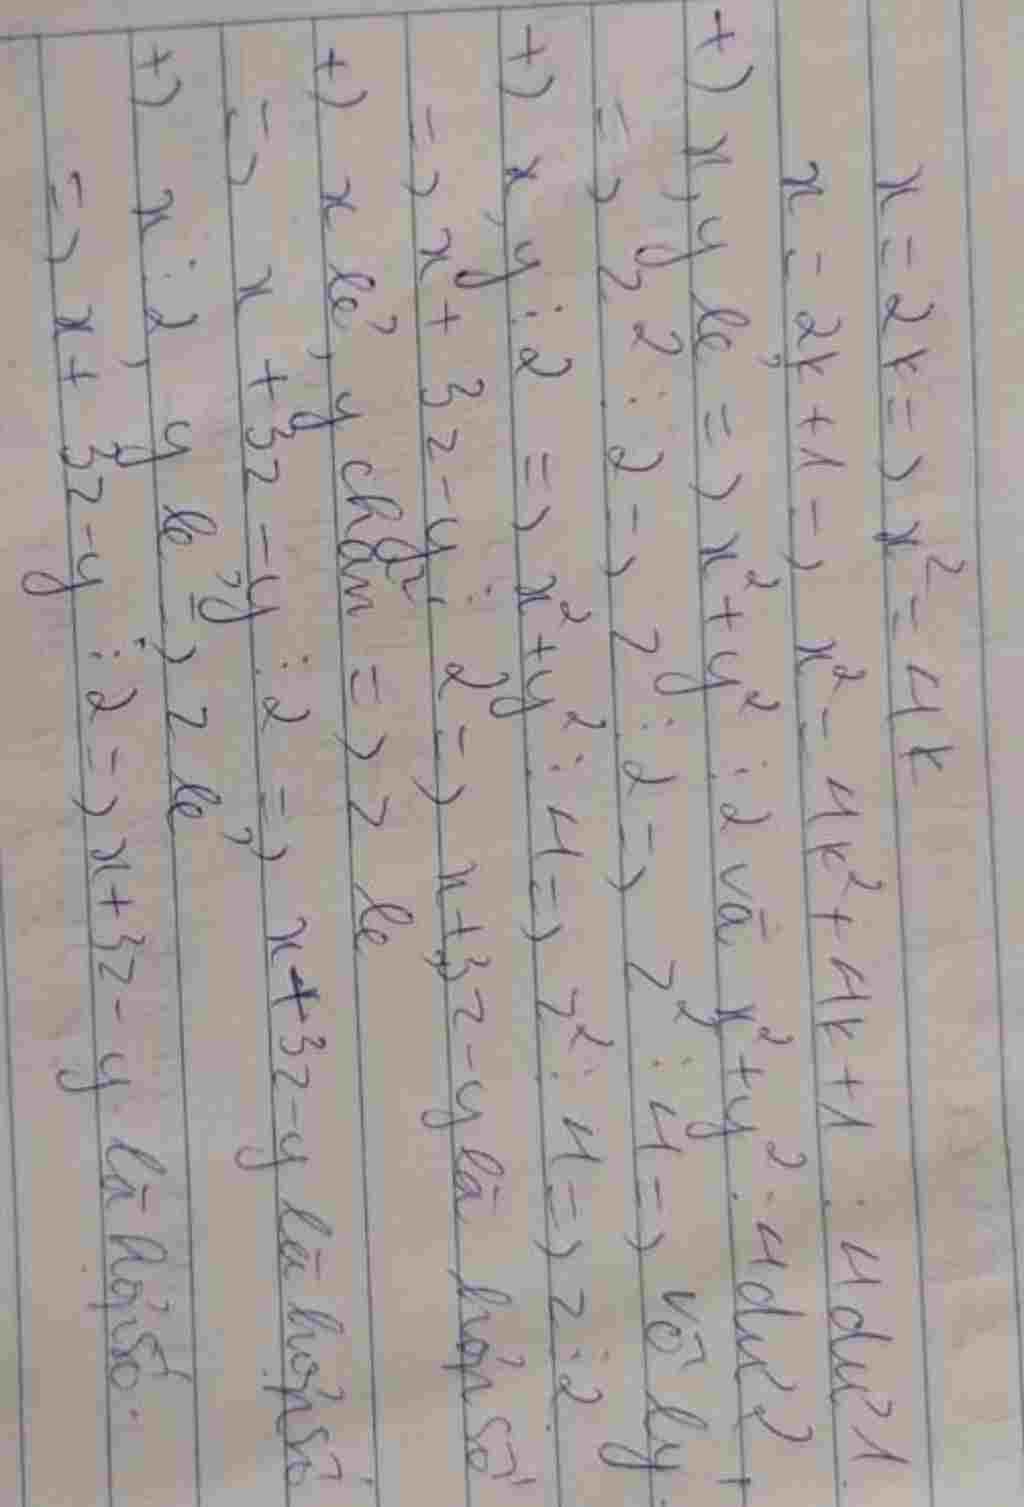 x = 2k => x² = 4k
x = 2k + 1 => x² = 4k² + 4k + 1 : 4 dư 1.
+) x, y lẻ => x² + y² ⋮ 2 và x² + y² : 4 dư 2
=> z² ⋮ 2 => z ⋮ 2 => z² ⋮ 4 => vô lý.
+) x, y ⋮ 2 => x² + y² ⋮ 4 => z² ⋮ 4 => z ⋮ 2
=> x + 3z - y ⋮ 2 => x + 3z - y là hợp số
+) x lẻ, y chẵn => z lẻ
=> x + 3z - y ⋮ 2 => x + 3z - y là hợp số.
+) x ⋮ 2, y lẻ => z lẻ
=> x + 3z - y ⋮ 2 => x + 3z - y là hợp số.